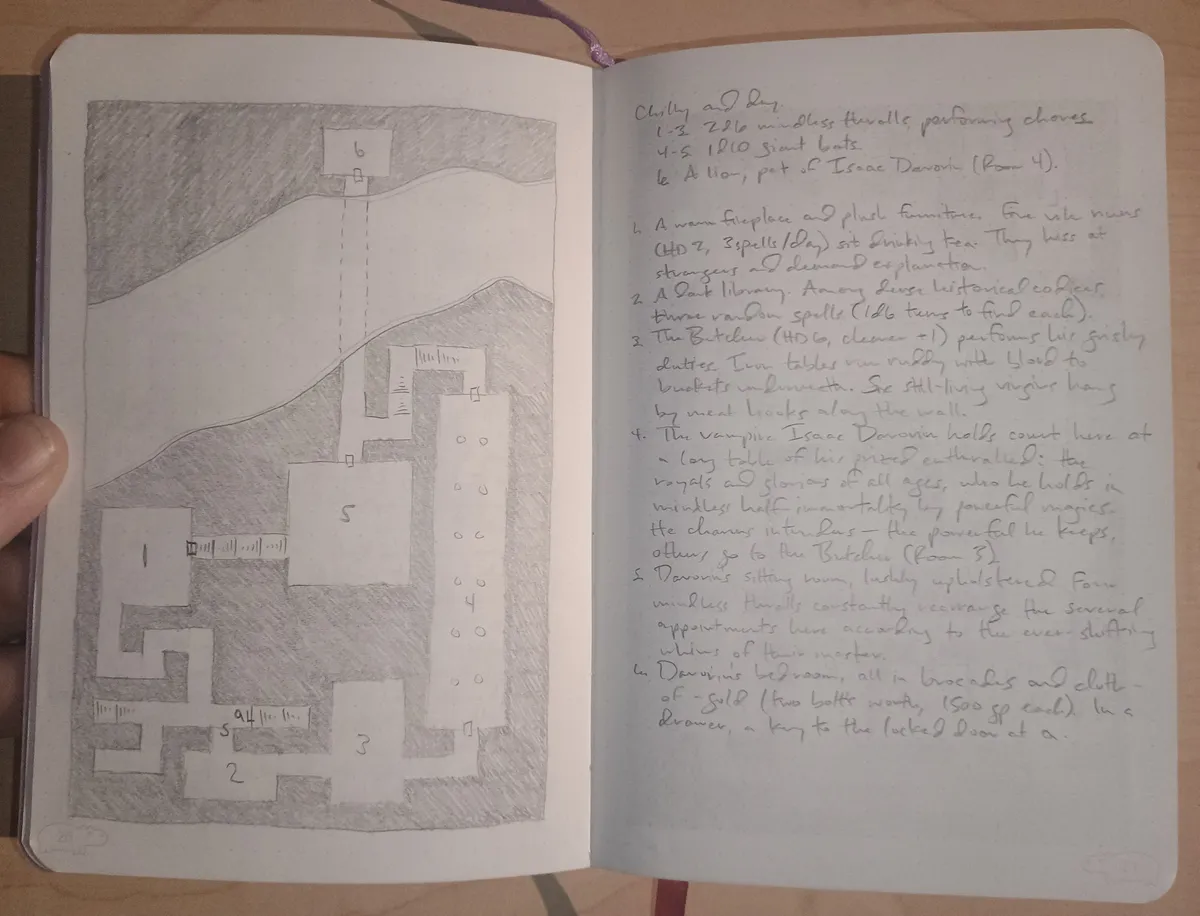 6
5
1
4
S
a
3
2
Chilly and dry
1-3 2d6 mindless thralls performing chores
4-5 1d10 giant bats
6 A lion, pet of Isaac Davorin (Room 4).
1. A warm fireplace and plush furniture. Five vile nuns
(HD 2, 3 spells/day) sit drinking tea. They hiss at
strangers and demand explanation.
2. A dark library. Among dense historical codices,
three random spells (1d6 turns to find each).
3. The Butcher (HD 6, cleaver +1) performs his grisly
duties. Iron tables run ruddy with blood to
buckets underneath. Six still-living virgins hang
by meat hooks along the wall.
4. The vampire Isaac Davorin holds court here at
a long table of his prized enthralled: the
royals and glorious of all ages, who he holds in
mindless half-immortality by powerful magics.
He charms intruders — the powerful he keeps,
others go to the Butcher (Room 3)
5. Davorin's sitting room, lushly upholstered. Four
mindless thralls constantly rearrange the several
appointments here according to the ever-shifting
whims of their master.
6. Davorin's bedroom, all in brocades and cloth-
of-gold (two bolts worth, 1500 gp each). In a
drawer, a key to the locked door at a.